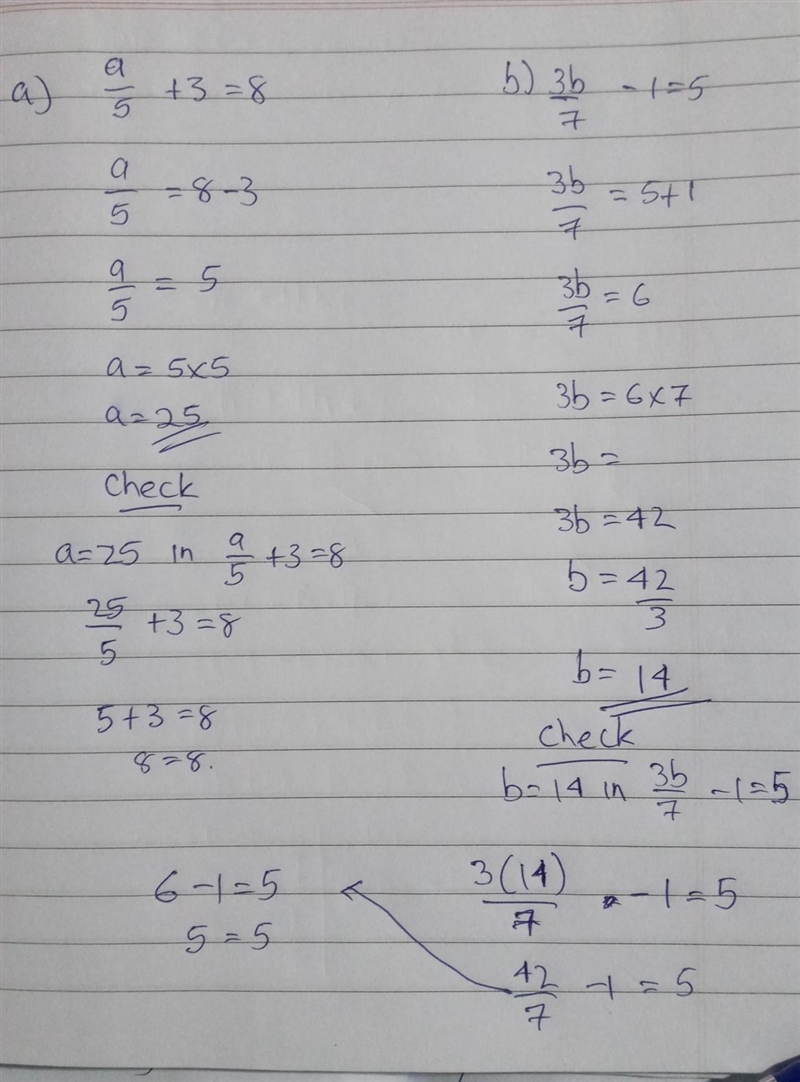 a) a/5 +3 = 8
a/5 = 8-3
a/5 = 5
a = 5×5
a = 25
Check
a=25 in a/5 +3=8
25/5 +3 = 8
5+3 = 8
8=8.
b) 3b/7 -1 = 5
3b/7 = 5+1
3b/7 = 6
3b = 6×7
3b =
3b = 42
b = 42/3
b = 14
Check
b=14 in 3b/7 -1=5
3(14)/7 -1 = 5
42/7 -1 = 5
6-1=5
5 = 5